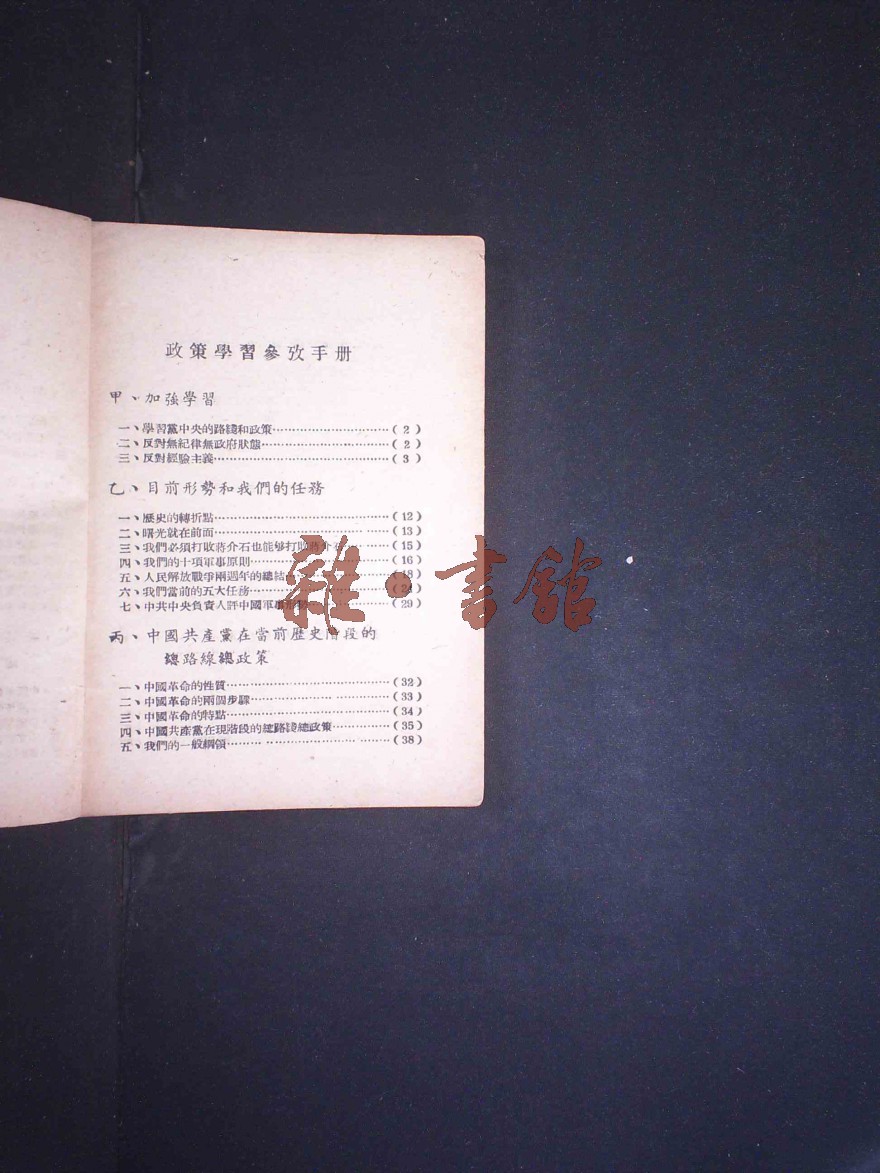 政策學習參攷手册
甲、加強學習
一、學習黨中央的路綫和政策……………………………(2)
二、反對無紀律無政府狀態………………………………(2)
三、反對經驗主義…………………………………………(3)
乙、目前形勢和我們的任務
一、歷史的轉折點…………………………………………(12)
二、曙光就在前面…………………………………………(13)
三、我們必須打敗蔣介石也能够打敗蔣介石……………(15)
四、我們的十項軍事原則…………………………………(16)
五、人民解放戰爭兩週年的總結…………………………(18)
六、我們當前的五大任務…………………………………(24)
七、中共中央負責人評中國軍事形勢……………………(29)
丙、中國共產黨在當前歷史階段的
總路線總政策
一、中國革命的性質………………………………………(32)
二、中國革命的兩個步驟…………………………………(33)
三、中國革命的特點………………………………………(34)
四、中國共產黨在現階段的總路綫總政策………………(35)
五、我們的一般綱領………………………………………(38)
雜·書館